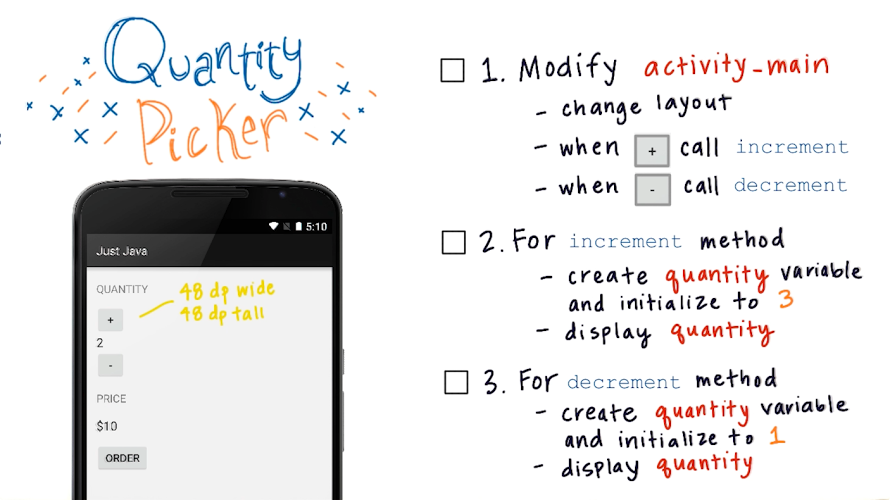 Quantity
Picker
5:10
Just Java
QUANTITY
48 dp wide
48 dp tall
+
2
-
PRICE
$10
ORDER
1. Modify activity_main
- change layout
- when + call increment
- when - call decrement
2. For increment method
- create quantity variable
and initialize to 3
- display quantity
3. For decrement method
- create quantity variable
and initialize to 1
- display quantity